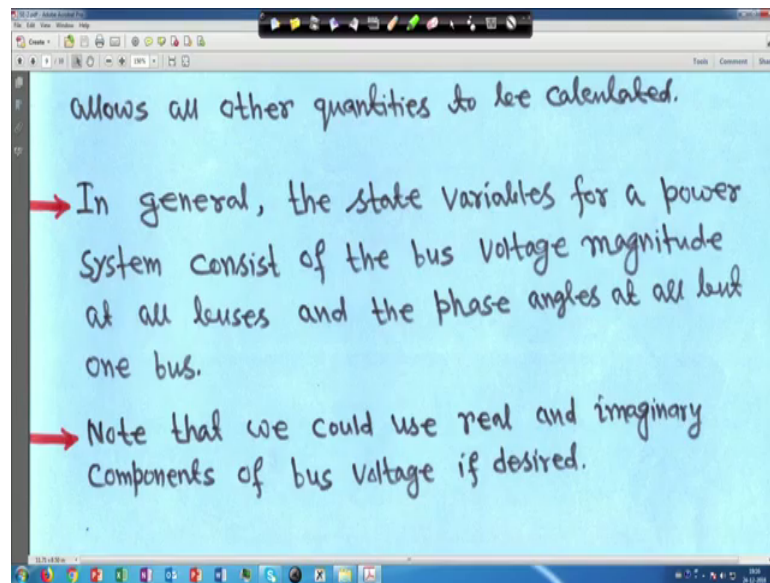 File Edit View Window Help
Create
Tools Comment
allows all other quantities to be calculated.
In general, the state variables for a power
system consist of the bus voltage magnitude
at all buses and the phase angles at all but
one bus.
Note that we could use real and imaginary
components of bus voltage if desired.